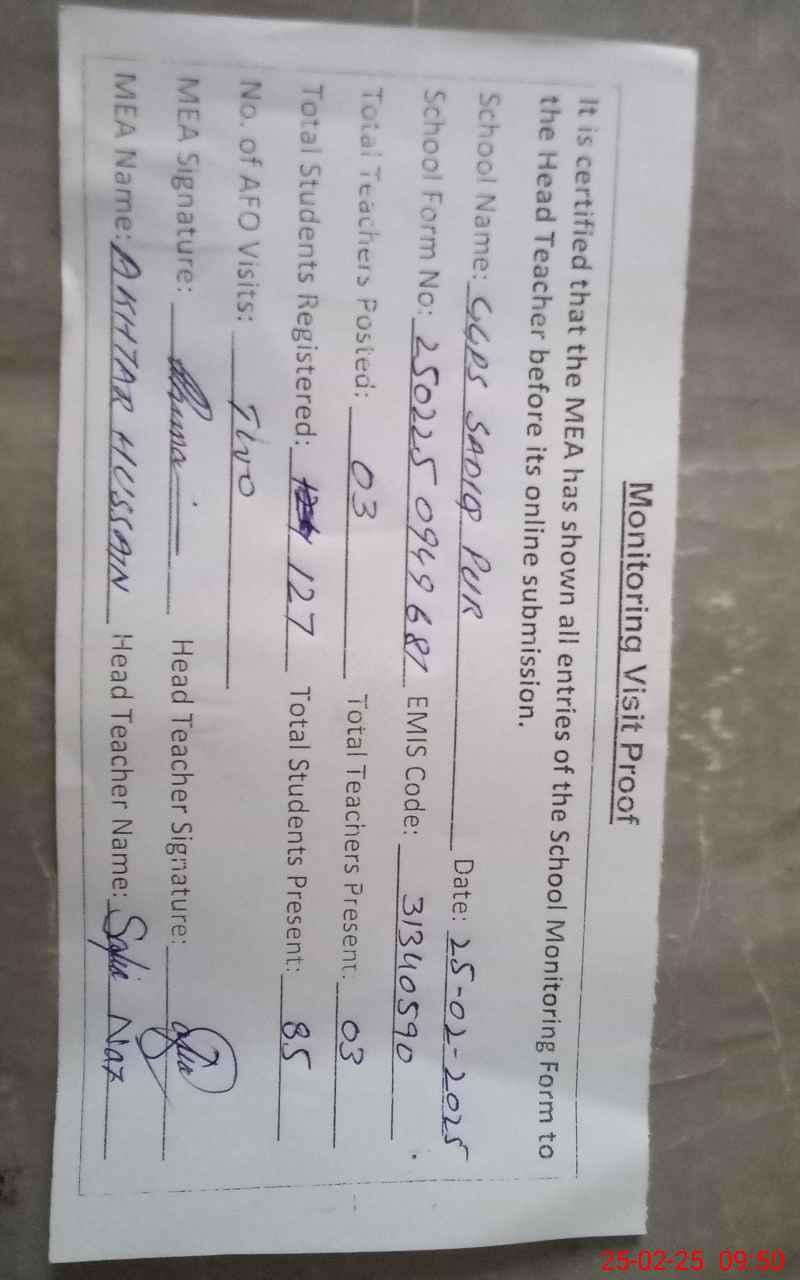 Monitoring Visit Proof
It is certified that the MEA has shown all entries of the School Monitoring Form to
the Head Teacher before its online submission.
School Name: GGPS SADIQ PUR Date: 25-02-2025
School Form No: 250225 0949 687 EMIS Code: 31340590
Total Teachers Posted: 03 Total Teachers Present: 03
Total Students Registered: 127 Total Students Present: 85
No. of AFO Visits:
MEA Signature: Head Teacher Signature:
MEA Name: AKHTAR HUSSAIN Head Teacher Name: Safia Naz
25-02-25 09:50